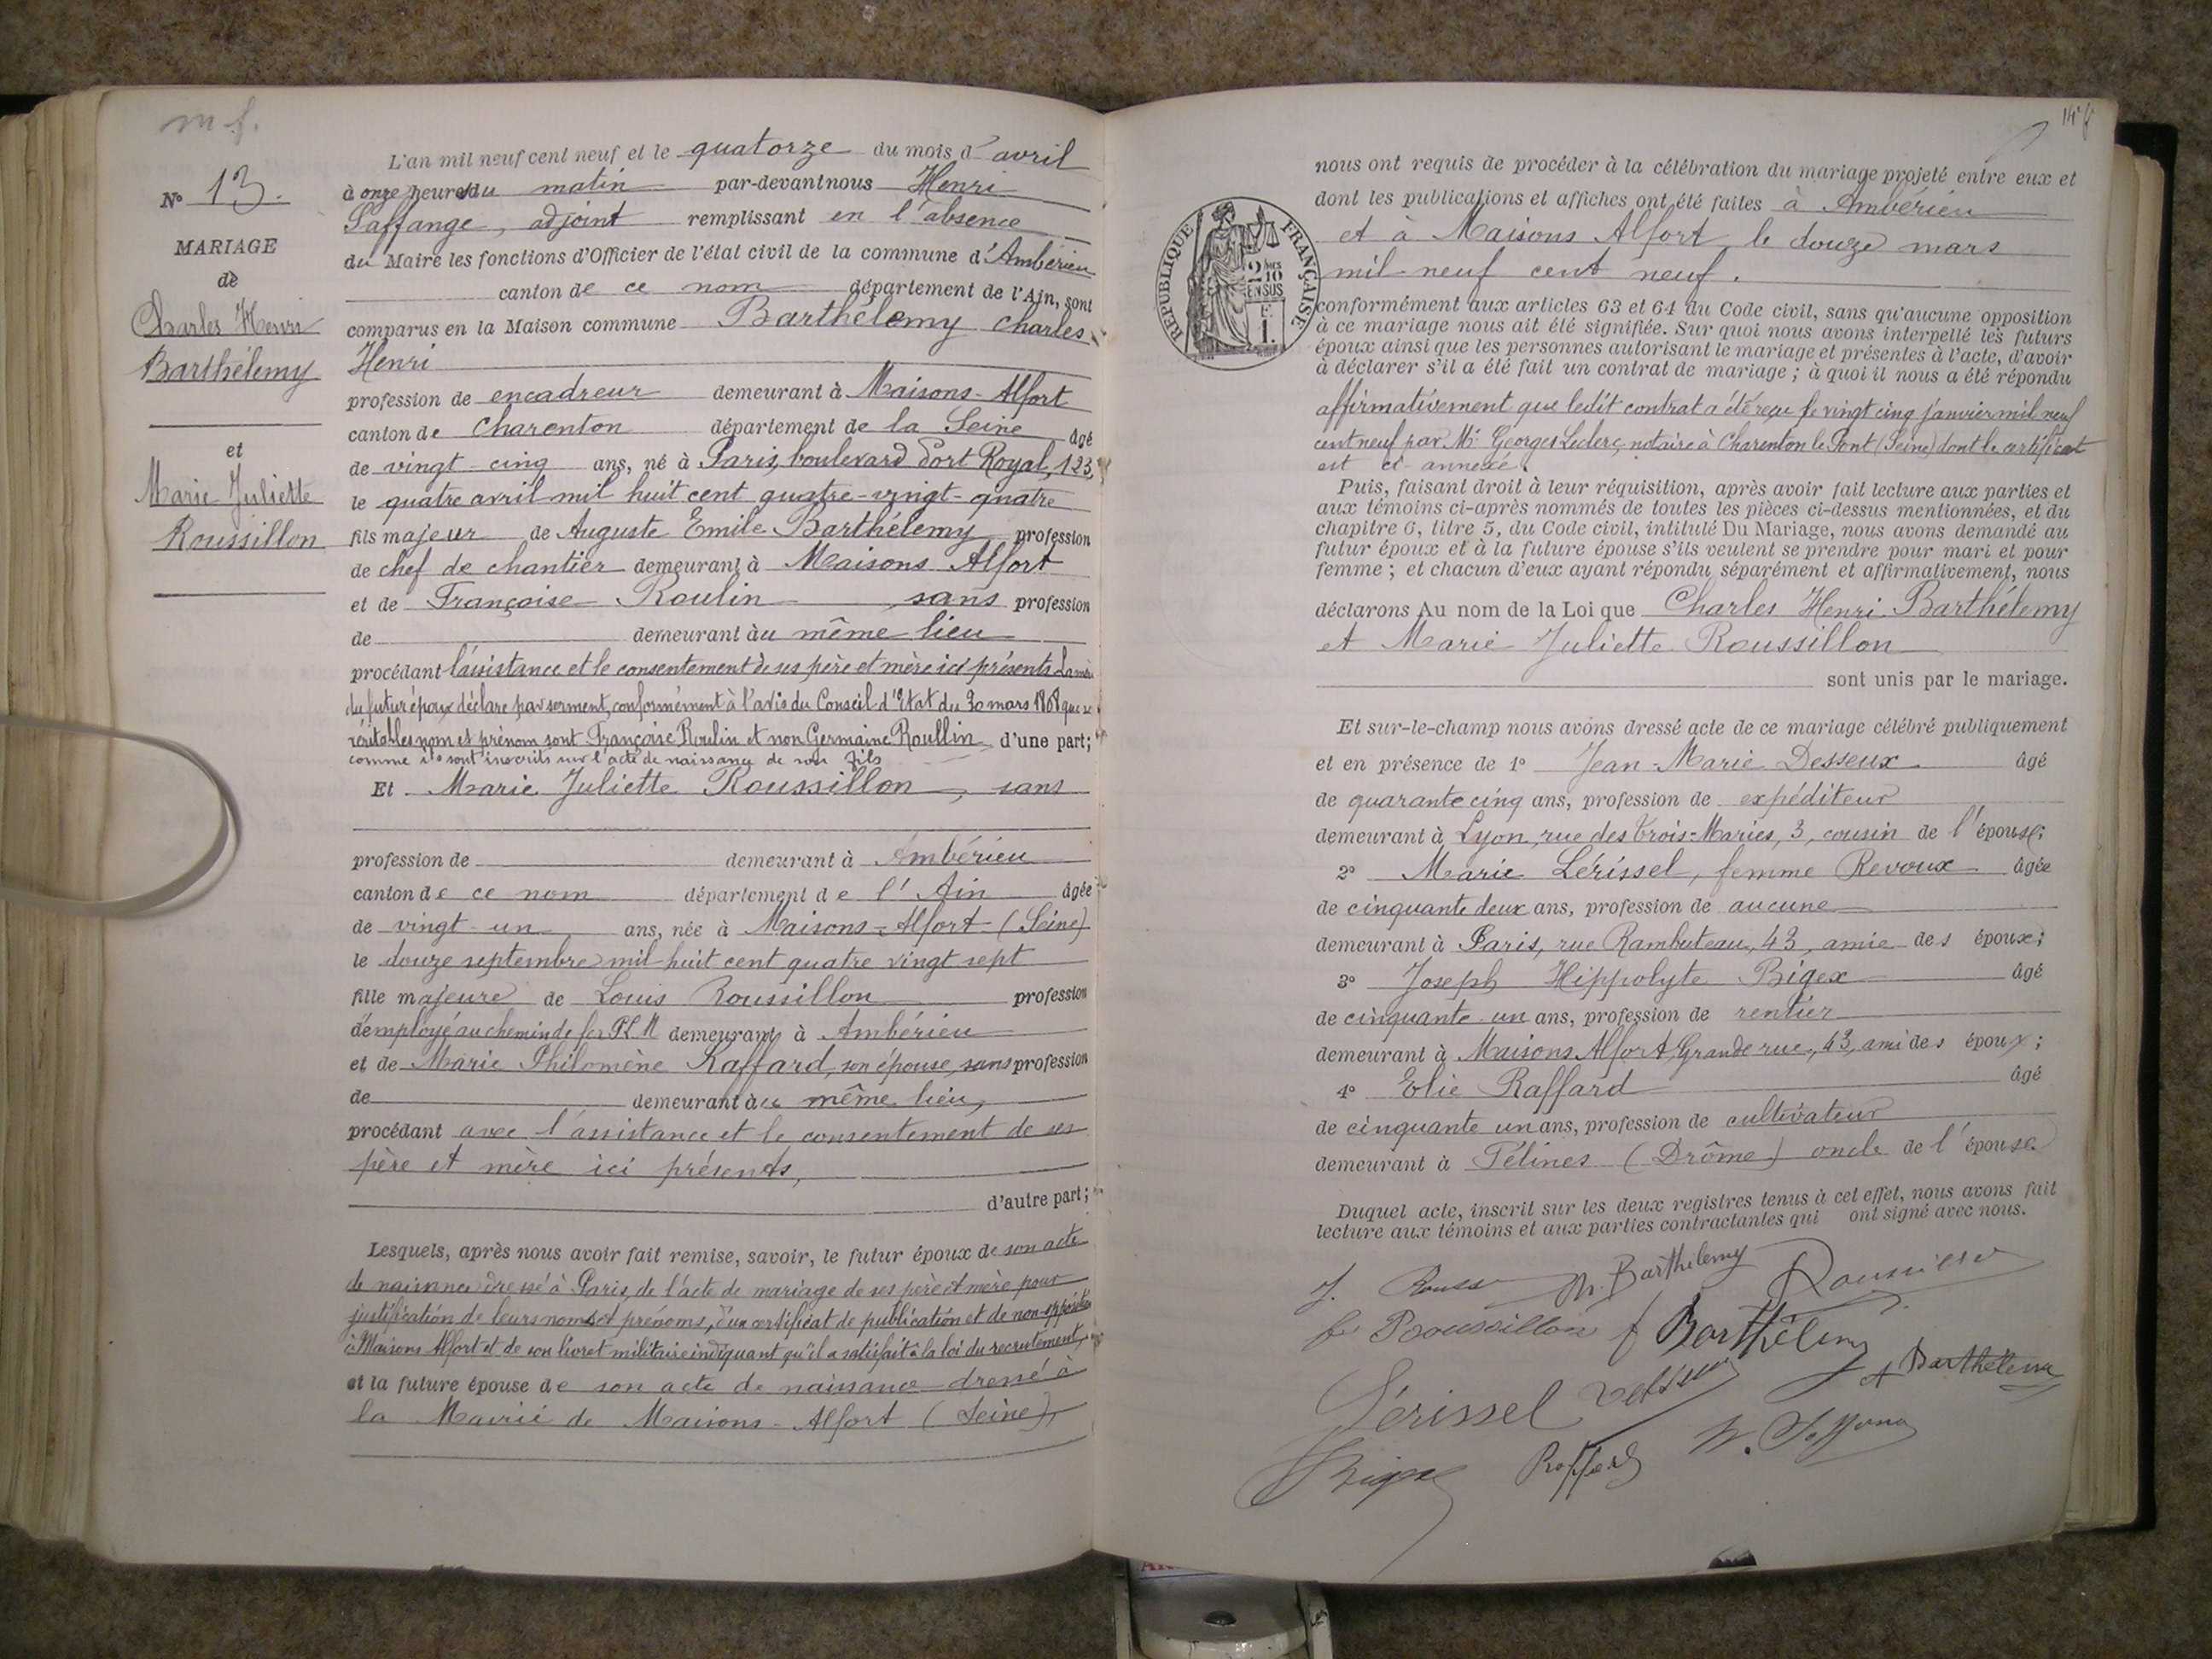 m.f.
N° 13.
MARIAGE
de
Charles Henri
Barthélemy
et
Marie Juliette
Roussillon
L'an mil neuf cent neuf et le quatorze du mois d'avril
à onze heures du matin par-devant nous Henri
Saffange, adjoint remplissant en l'absence
du Maire les fonctions d'Officier de l'état civil de la commune d'Ambérieu
canton de ce nom département de l'Ain, sont
comparus en la Maison commune Barthélemy Charles
Henri
profession de encadreur demeurant à Maisons-Alfort
canton de Charenton département de la Seine âgé
de vingt-cinq ans, né à Paris, boulevard Port Royal, 123,
le quatre avril mil huit cent quatre-vingt-quatre
fils majeur de Auguste Emile Barthélemy profession
de chef de chantier demeurant à Maisons Alfort
et de Françoise Roulin sans profession
de demeurant au même lieu
procédant l'assistance et le consentement de ses père et mère ici présents La mère
du futur époux déclare par serment, conformément à l'avis du Conseil d'Etat du 30 mars 1808 que se
véritables nom et prénom sont Françoise Roulin et non Germaine Roullin d'une part;
comme ils sont inscrits sur l'acte de naissance de son fils
Et Marie Juliette Roussillon, sans
profession de demeurant à Ambérieu
canton de ce nom département de l'Ain âgée
de vingt-un ans, née à Maisons-Alfort (Seine)
le douze septembre mil huit cent quatre vingt sept
fille majeure de Louis Roussillon profession
d'employé au chemin de fer P.L.M demeurant à Ambérieu
et de Marie Philomène Raffard, son épouse, sans profession
de demeurant au même lieu,
procédant avec l'assistance et le consentement de ses
père et mère ici présents,
d'autre part;
Lesquels, après nous avoir fait remise, savoir, le futur époux de son acte
de naissance dressé à Paris, de l'acte de mariage de ses père et mère pour
justification de leurs noms et prénoms, d'un certificat de publication et de non-opposition
à Maisons Alfort et de son livret militaire indiquant qu'il a satisfait à la loi du recrutement,
et la future épouse de son acte de naissance dressé à
la Mairie de Maisons-Alfort (Seine),
nous ont requis de procéder à la célébration du mariage projeté entre eux et
dont les publications et affiches ont été faites à Ambérieu
et à Maisons Alfort, le douze mars
mil neuf cent neuf.
RÉPUBLIQUE FRANÇAISE
2 DMES
10
EN SUS
1F.
conformément aux articles 63 et 64 du Code civil, sans qu'aucune opposition
à ce mariage nous ait été signifiée. Sur quoi nous avons interpellé les futurs
époux ainsi que les personnes autorisant le mariage et présentes à l'acte, d'avoir
à déclarer s'il a été fait un contrat de mariage ; à quoi il nous a été répondu
affirmativement que ledit contrat a été reçu le vingt cinq janvier mil neuf
cent neuf par Me Georges Leclerc, notaire à Charenton le Pont (Seine) dont le certificat
est ci-annexé.
Puis, faisant droit à leur réquisition, après avoir fait lecture aux parties et
aux témoins ci-après nommés de toutes les pièces ci-dessus mentionnées, et du
chapitre 6, titre 5, du Code civil, intitulé Du Mariage, nous avons demandé au
futur époux et à la future épouse s'ils veulent se prendre pour mari et pour
femme ; et chacun d'eux ayant répondu séparément et affirmativement, nous
déclarons Au nom de la Loi que Charles Henri Barthélemy
et Marie Juliette Roussillon
sont unis par le mariage.
Et sur-le-champ nous avons dressé acte de ce mariage célébré publiquement
et en présence de 1° Jean-Marie Desseux âgé
de quarante cinq ans, profession de expéditeur
demeurant à Lyon, rue des Trois-Maries, 3, cousin de l'épouse;
2° Marie Lérissel, femme Revoux âgée
de cinquante deux ans, profession de aucune
demeurant à Paris, rue Rambuteau, 43, amie des époux;
3° Joseph Hippolyte Bigex âgé
de cinquante un ans, profession de rentier
demeurant à Maisons Alfort, Grande rue, 43, ami des époux;
4° Elie Raffard âgé
de cinquante un ans, profession de cultivateur
demeurant à Félines (Drôme) oncle de l'épouse.
Duquel acte, inscrit sur les deux registres tenus à cet effet, nous avons fait
lecture aux témoins et aux parties contractantes qui ont signé avec nous.
Barthélemy
Roussillon Barthélemy
Barthélemy
Lérissel
Bigex Raffard